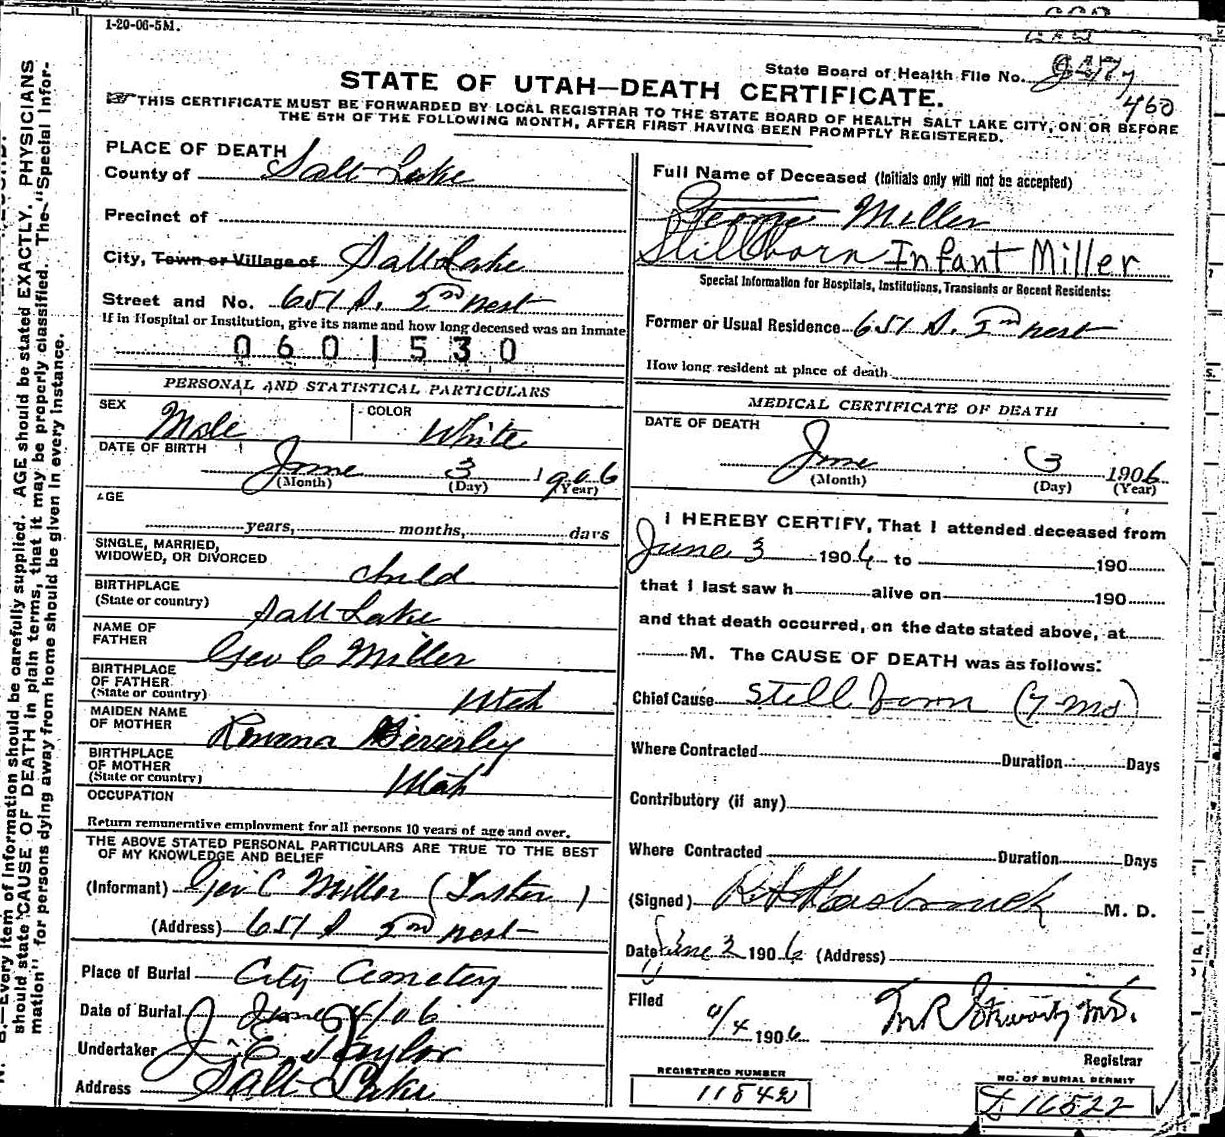 1-20-06-5M.
State Board of Health File No.
460
STATE OF UTAH—DEATH CERTIFICATE.
☞THIS CERTIFICATE MUST BE FORWARDED BY LOCAL REGISTRAR TO THE STATE BOARD OF HEALTH SALT LAKE CITY, ON OR BEFORE
THE 5TH OF THE FOLLOWING MONTH, AFTER FIRST HAVING BEEN PROMPTLY REGISTERED.
PLACE OF DEATH
County of Salt Lake
Precinct of
City, Town or Village of Salt Lake
Street and No. 651 S. 2nd West
If in Hospital or Institution, give its name and how long deceased was an inmate
0601530
PERSONAL AND STATISTICAL PARTICULARS
SEX Male COLOR White
DATE OF BIRTH
June 3 1906
(Month) (Day) (Year)
AGE
years, months, days
SINGLE, MARRIED,
WIDOWED, OR DIVORCED child
BIRTHPLACE
(State or country) Salt Lake
NAME OF
FATHER Geo C Miller
BIRTHPLACE
OF FATHER
(State or country) Utah
MAIDEN NAME
OF MOTHER Beverley
BIRTHPLACE
OF MOTHER
(State or country) Utah
OCCUPATION
Return remunerative employment for all persons 10 years of age and over.
THE ABOVE STATED PERSONAL PARTICULARS ARE TRUE TO THE BEST
OF MY KNOWLEDGE AND BELIEF
(Informant) Geo C Miller (Father)
(Address) 651 S 2nd West
Place of Burial City Cemetery
Date of Burial June 4/06
Undertaker Taylor
Address Salt Lake
Full Name of Deceased (Initials only will not be accepted)
George Miller
Stillborn Infant Miller
Special Information for Hospitals, Institutions, Transients or Recent Residents:
Former or Usual Residence 651 S. 2nd West
How long resident at place of death
MEDICAL CERTIFICATE OF DEATH
DATE OF DEATH
June 3 1906
(Month) (Day) (Year)
I HEREBY CERTIFY, That I attended deceased from
June 3 1906 to 190
that I last saw h alive on 190
and that death occurred, on the date stated above, at
M. The CAUSE OF DEATH was as follows:
Chief Cause Still born (7 mo)
Where Contracted Duration Days
Contributory (if any)
Where Contracted Duration Days
(Signed) Hasbrouck M. D.
Date June 3 1906 (Address)
Filed
6/4 1906 M.D.
Registrar
REGISTERED NUMBER
11542
NO. OF BURIAL PERMIT
16522
B.—Every item of information should be carefully supplied. AGE should be stated EXACTLY. PHYSICIANS
should state CAUSE OF DEATH in plain terms, that it may be properly classified. The "Special Infor-
mation" for persons dying away from home should be given in every instance.